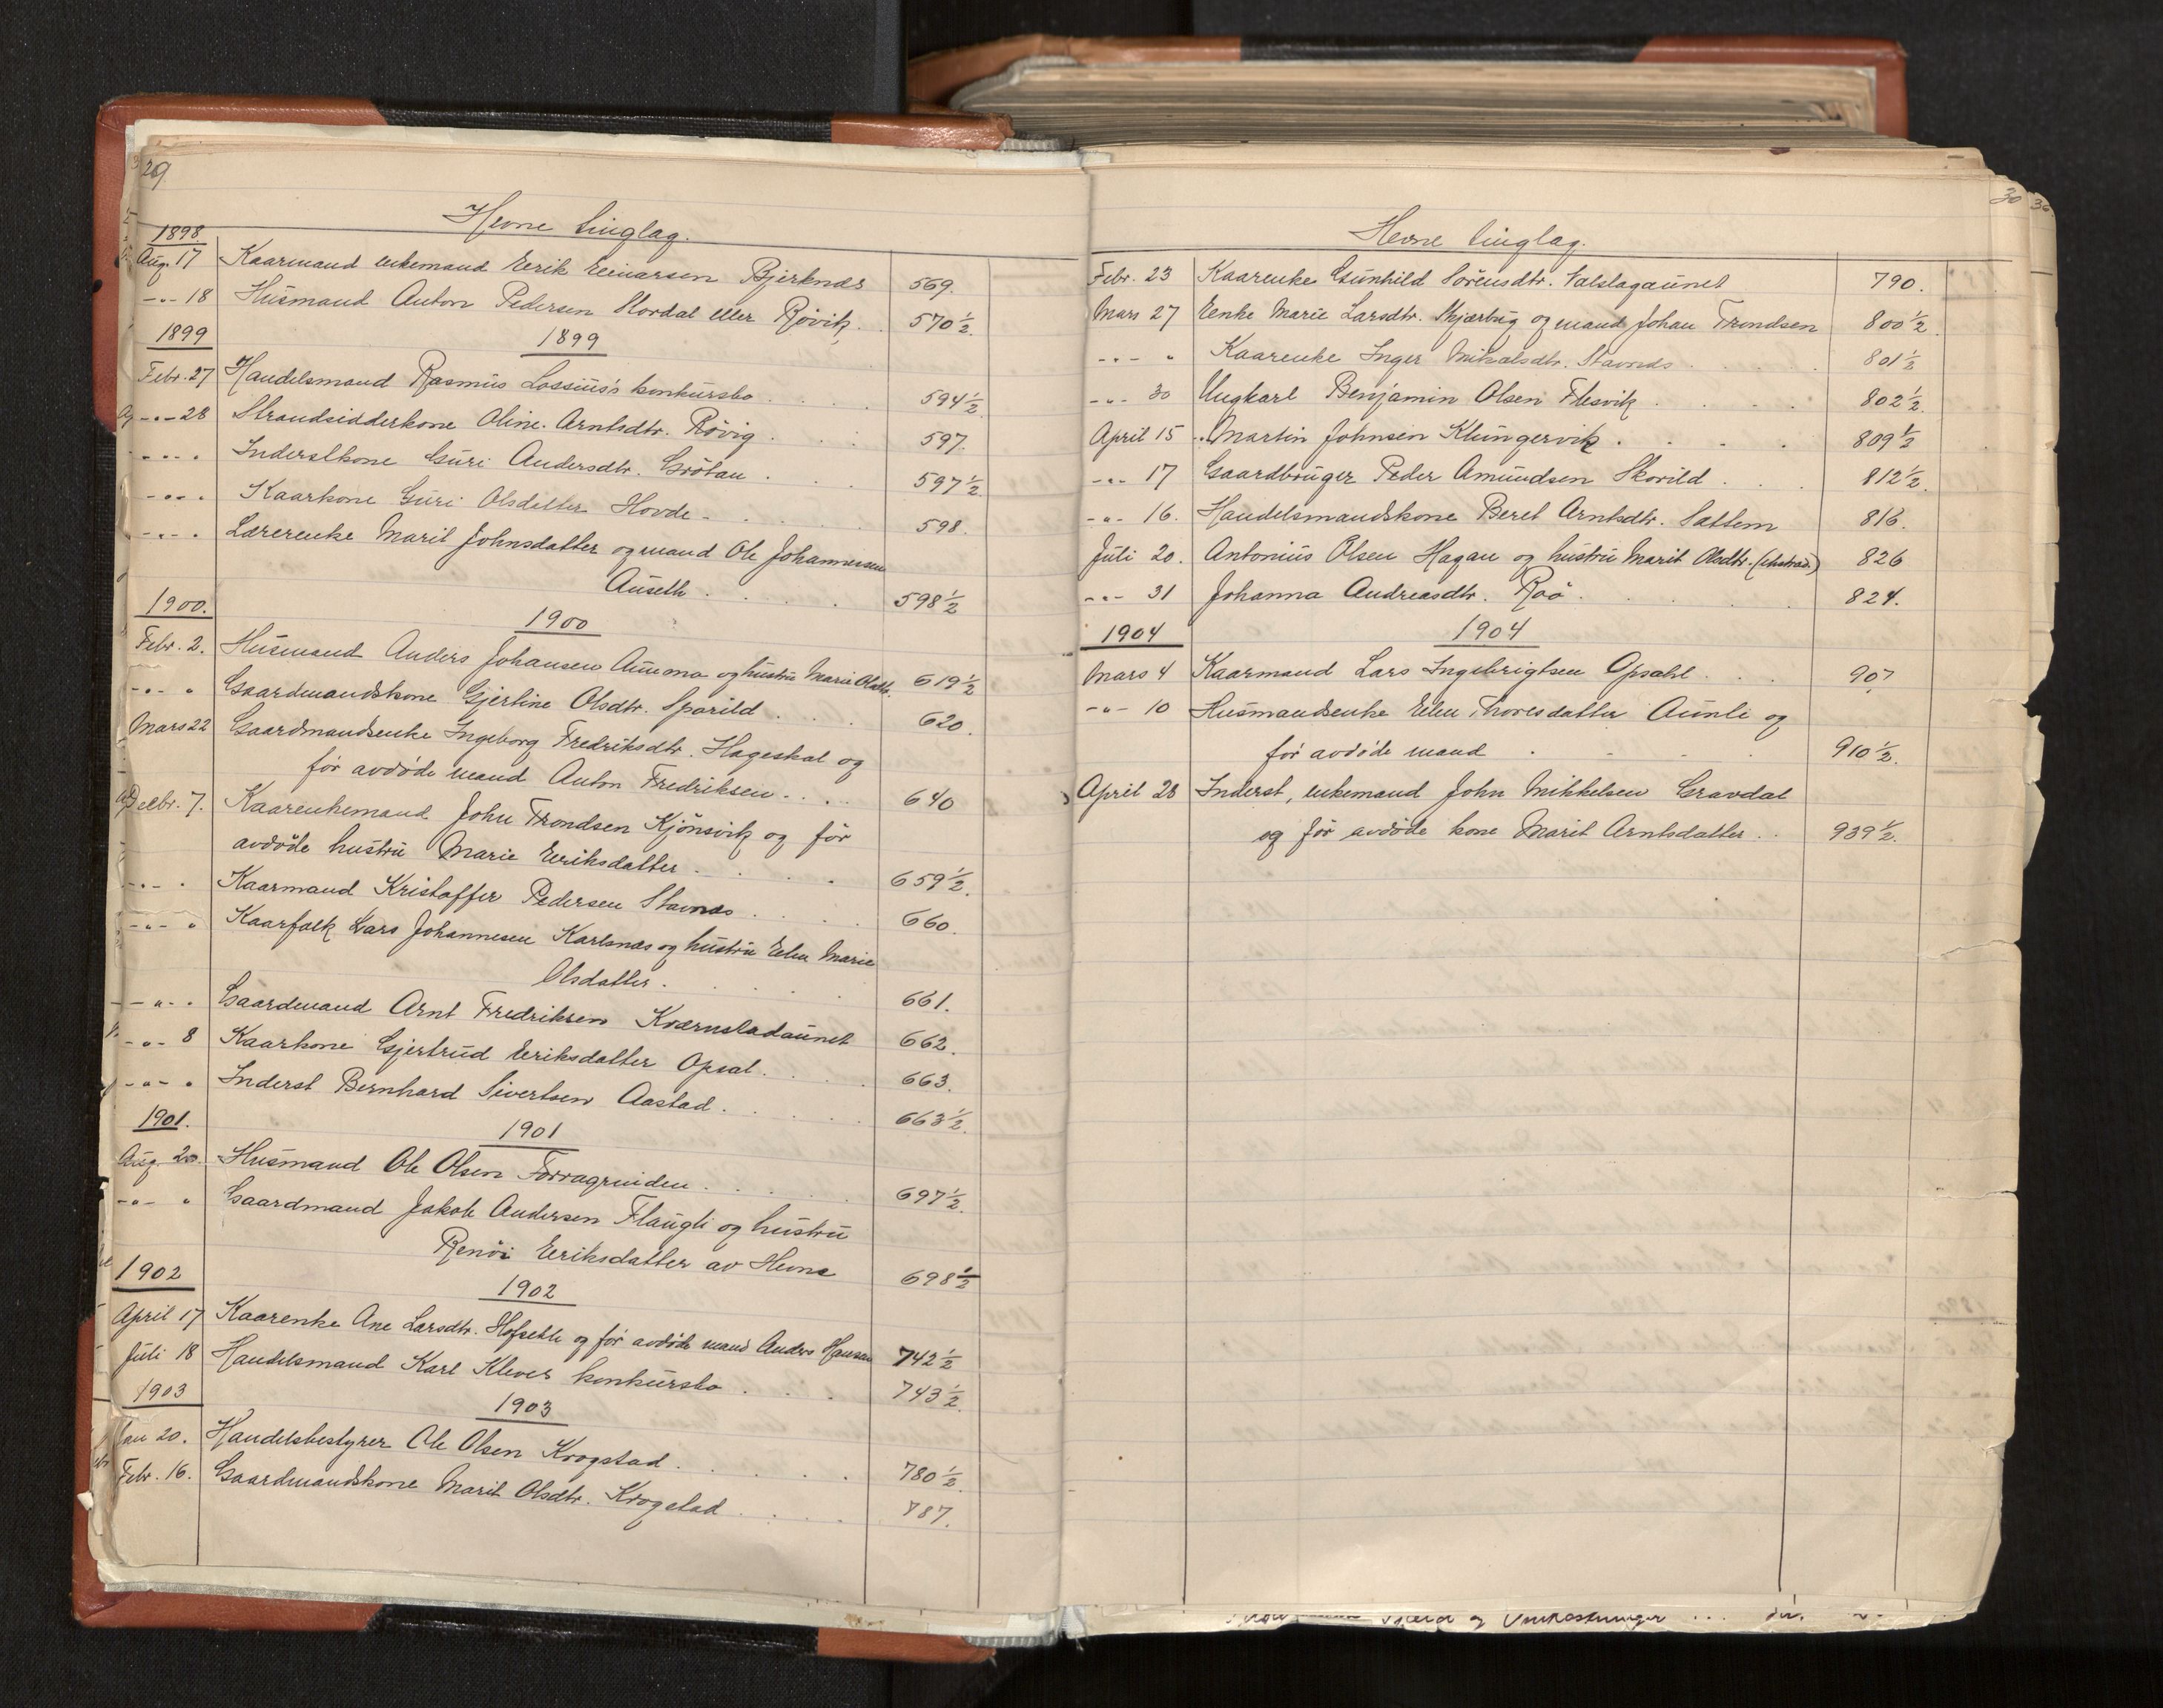 29
Hevne tinglag.
1898.
Aug. 17 Kaarmand enkemand Eerik Eeinarsen Bjerknes 569.
-"- 18 Husmand Anton Pedersen Stordal eller Røvik. 570½.
1899 1899
Febr. 27 Handelsmand Rasmus Lossius's konkursbo . . . 594½.
-"- 28 Strandsidderkone Oline Arntsdtr. Røvig . . . 597.
-"- " Inderstkone Guri Andersdtr. Grøtan . . . 597½.
-"- " Kaarkone Guri Olsdatter Hovde . . . 598.
-"- " Lærerenke Marit Johnsdatter og mand Ole Johannesen
Auseth . . . . 598½
1900. 1900
Febr. 2. Husmand Anders Johansen Aunmo og hustru Marie Olsdtr. 619½
-"- " Gaardmandskone Gjertine Olsdtr. Sparild . . . 620.
Mars 22 Gaardmandsenke Ingeborg Fredriksdtr. Hageskal og
før avdøde mand Anton Fredriksen . . . 640
Decbr. 7. Kaarenkemand John Trondsen Kjønsvik og før
avdøde hustru Marie Eeriksdatter . . . . 659½.
-"- " Kaarmand Kristoffer Pedersen Stavnæs . . . . 660.
-"- " Kaarfolk Lars Johannesen Karlsnæs og hustru Elen Marie
Olsdatter . . . . 661.
-"- " Gaardmand Arnt Fredriksen Kværnstadaunet 662.
-"- 8 Kaarkone Gjertrud Eeriksdatter Opsal . . . . 663.
-"- " Inderst Bernhard Sivertsen Aastad . . . . 663½.
1901. 1901
Aug. 20. Husmand Ole Olsen Forragrinden . . . . 697½.
-"- " Gaardmand Jakob Andersen Flaugli og hustru
Renøi Eeriksdatter av Hevne 698½
1902 1902
April 17 Kaarenke Ane Larsdtr. Hofseth og før avdøde mand Anders Hansen 742½
Juli 18 Handelsmand Karl Kleves konkursbo . . . 743½.
1903 1903
Jan 20. Handelsbestyrer Ole Olsen Krogstad . . . . . 780½.
Febr. 16. Gaardmandskone Marit Olsdtr. Krogstad . . . . 787.
30
Hevne tinglag.
Febr. 23 Kaarenke Gunhild Sørensdtr. Valslagaunet 790.
Mars 27 Eenke Marie Larsdtr. Skjærbug og mand Johan Trondsen 800½.
-"- " Kaarenke Inger Mikalsdtr. Stavnæs . . . . 801½
-"- 30 Ungkarl Benjamin Olsen Flesvik . . . . 802½.
April 15 " Martin Johnsen Klungervik . . . . 809½
-"- 17 Gaardbruger Peder Amundsen Skorild . . . 812½.
-"- 16. Handelsmandskone Beret Arntsdtr. Sattem 816.
Juli 20. Antonius Olsen Hagan og hustru Marit Olsdtr. (ekstrad.) 826
-"- 31 Johanna Andreasdtr. Røø . . . . 824.
1904 1904
Mars 4 Kaarmand Lars Ingebrigtsen Opsahl . . . 907
-"- 10 Husmandsenke Elen Thoresdatter Aunli og
før avdøde mand . . . . 910½.
April 28 Inderst, enkemand John Mikkelsen Gravdal
og før avdøde kone Marit Arntsdatter . . 939½.
og Omkostninger